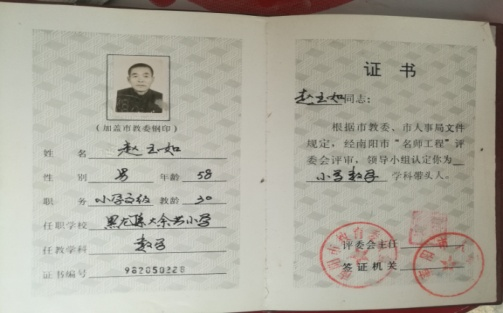 (加盖市教委钢印)
姓名 赵玉如
性别 男 年龄 58
职务 小学高级 教龄 30
任职学校
任教学科 数学
证书编号 962050228
证书
赵玉如同志:
根据市教委、市人事局文件
规定,经南阳市“名师工程”评
委会评审,领导小组认定你为
小学数学 学科带头人。
评委会主任
签证机关